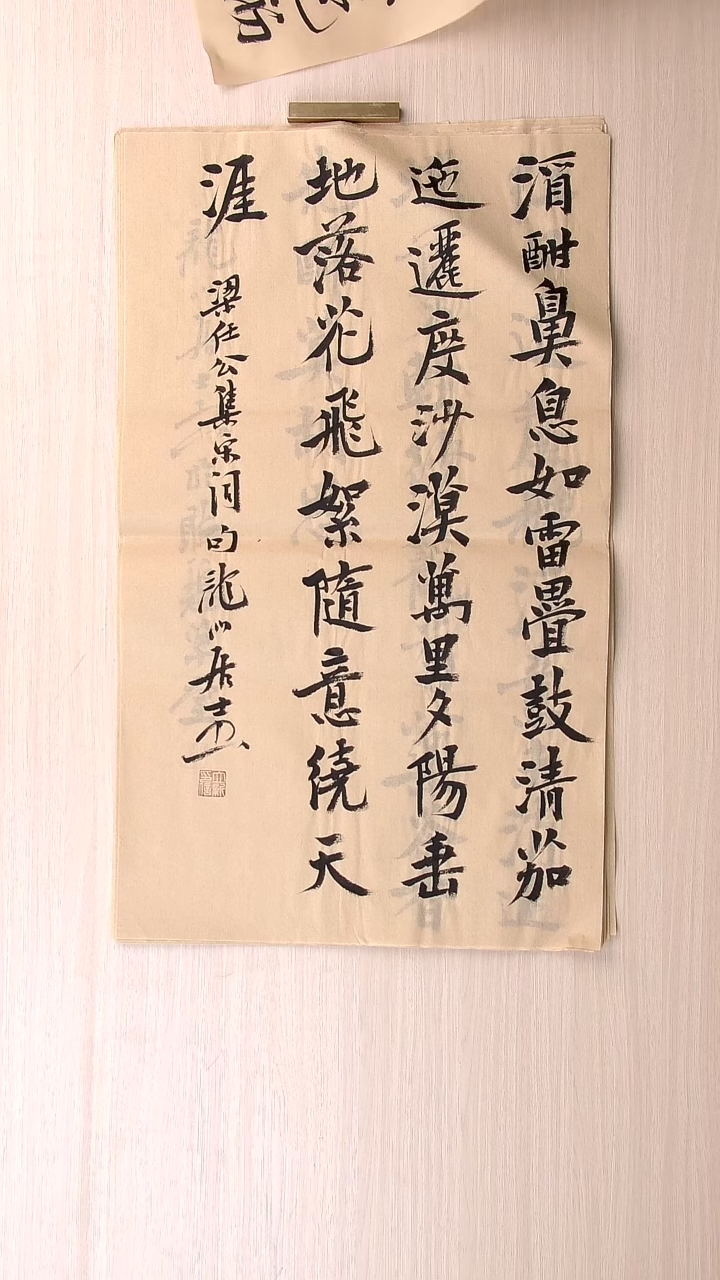 酒酣鼻息如雷疊鼓清笳
迤邐度沙漠萬里夕陽垂
地落花飛絮隨意繞天
涯
梁任公集宋詞句龍居士書